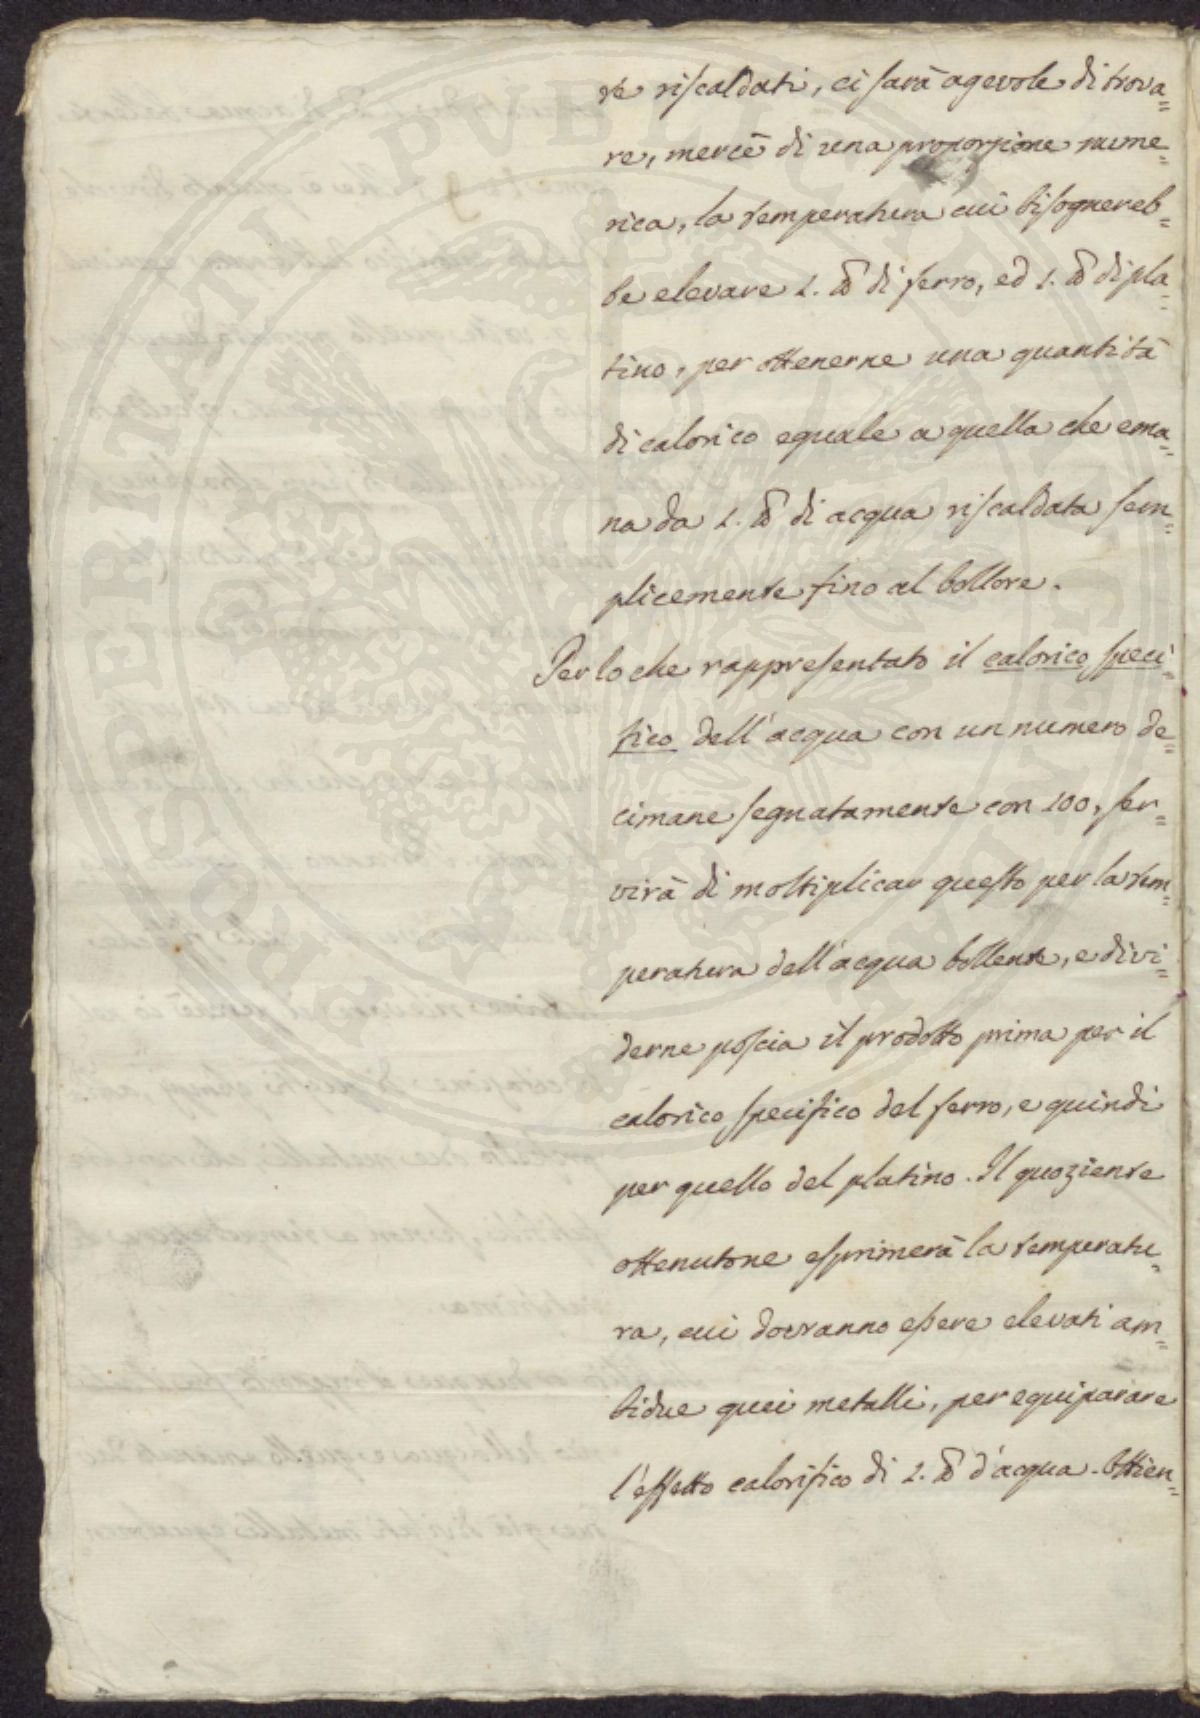 te riscaldati, ci sarà agevole di trova=
re, mercè di una proporzione nume=
rica, la temperatura cui bisognereb=
be elevare 1. ℔ di ferro, ed 1. ℔ di pla=
tino, per ottenerne una quantità
di calorico eguale a quella che ema=
na da 1. ℔ di acqua riscaldata sem=
plicemente fino al bollore.
Perloche rappresentato il calorico speci=
fico dell'acqua con un numero de=
cimane segnatamente con 100, ser=
virà di moltiplicar questo per la tem=
peratura dell'acqua bollente, e divi=
derne poscia il prodotto prima per il
calorico specifico del ferro, e quindi
per quello del platino. Il quoziente
ottenutone esprimerà la temperatu=
ra, cui dovranno essere elevati am=
bidue quei metalli, per equiparare
l'effetto calorifico di 1. ℔ d'acqua. Ottien=
PROSPERITATI PUBLICAE AUGENDAE